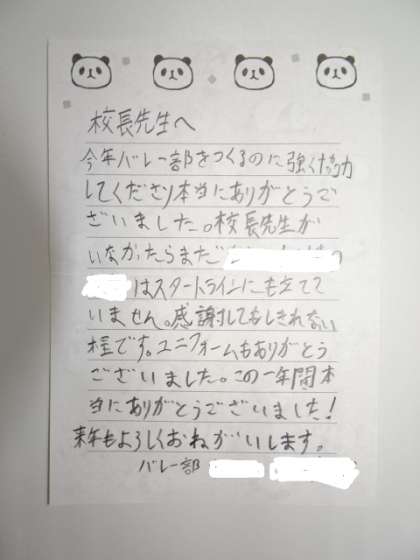 校長先生へ
今年バレー部をつくるのに強く協力
してくださり本当にありがとうご
ざいました。校長先生が
いなかったらまだ
はスタートラインにも立てて
いません。感謝してもしきれない
程です。ユニフォームもありがとう
ございました。この一年間本
当にありがとうございました!
来年もよろしくおねがいします。
バレー部